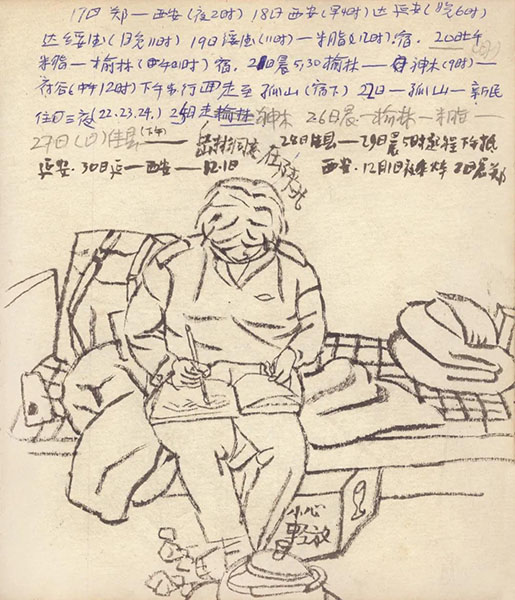 17日 郑—西安(夜2时) 18日西安(早4时)达延安(晚6时)
达绥德(晚11时) 19日绥德(11时)—米脂(12时)宿. 20日
米脂—榆林(1时)宿. 21日晨5.30榆林—神木(9时)—
府谷(中午12时)下午步行四走至孤山(宿下) 22日—孤山—新民
住三夜(22.23.24.) 25日走榆林神木 26日晨—榆林—米脂—
27日(日)佳县(下午)— 28日佳县—29日晨5时起程下午抵
延安. 30日延—西安—12.1日 西安. 12月1日夜乘火车 2日晨郑
小心
轻放